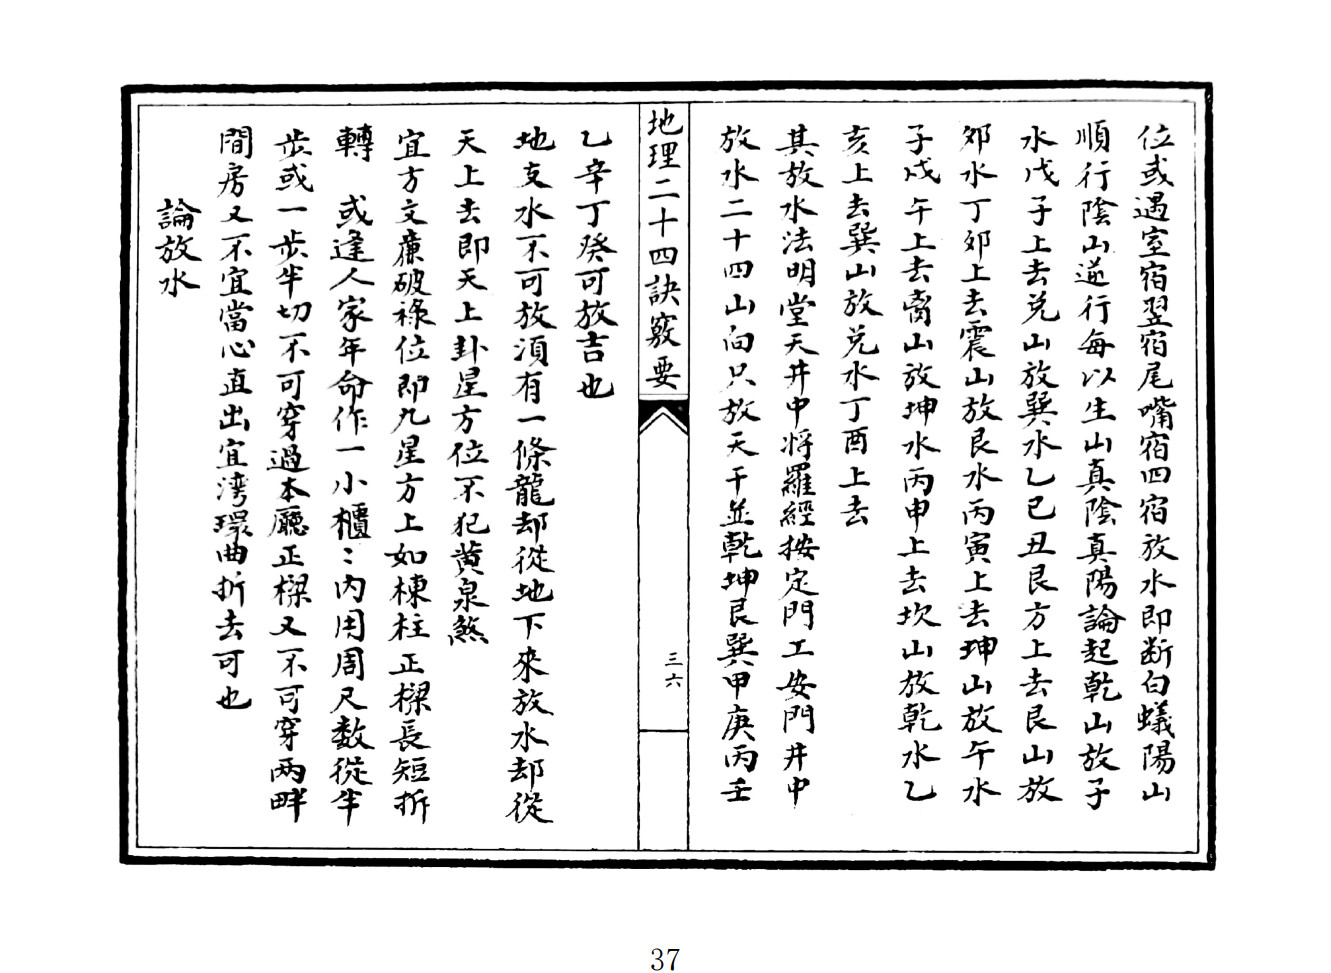 位或遇室宿翌宿尾嘴宿四宿放水即断白蟻陽山
順行陰山逆行每以生山真陰真陽論起乾山放子
水戊子上去兑山放巽水乙巳丑艮方上去艮山放
郊水丁郊上去震山放艮水丙寅上去坤山放午水
子戊午上去离山放坤水丙申上去坎山放乾水乙
亥上去巽山放兑水丁酉上去
其放水法明堂天井中將羅經按定門工安門井中
放水二十四山向只放天干並乾坤艮巽甲庚丙壬
地理二十四訣竅要
三六
乙辛丁癸可放吉也
地支水不可放湏有一條龍却從地下來放水却從
天上去即天上卦星方位不犯黄泉煞
宜方文廉破祿位即九星方上如棟柱正樑長短折
轉 或逢人家年命作一小櫃〻内用周尺数從半
步或一步半切不可穿過本廳正樑又不可穿两畔
間房又不宜當心直出宜湾環曲折去可也
論放水
37